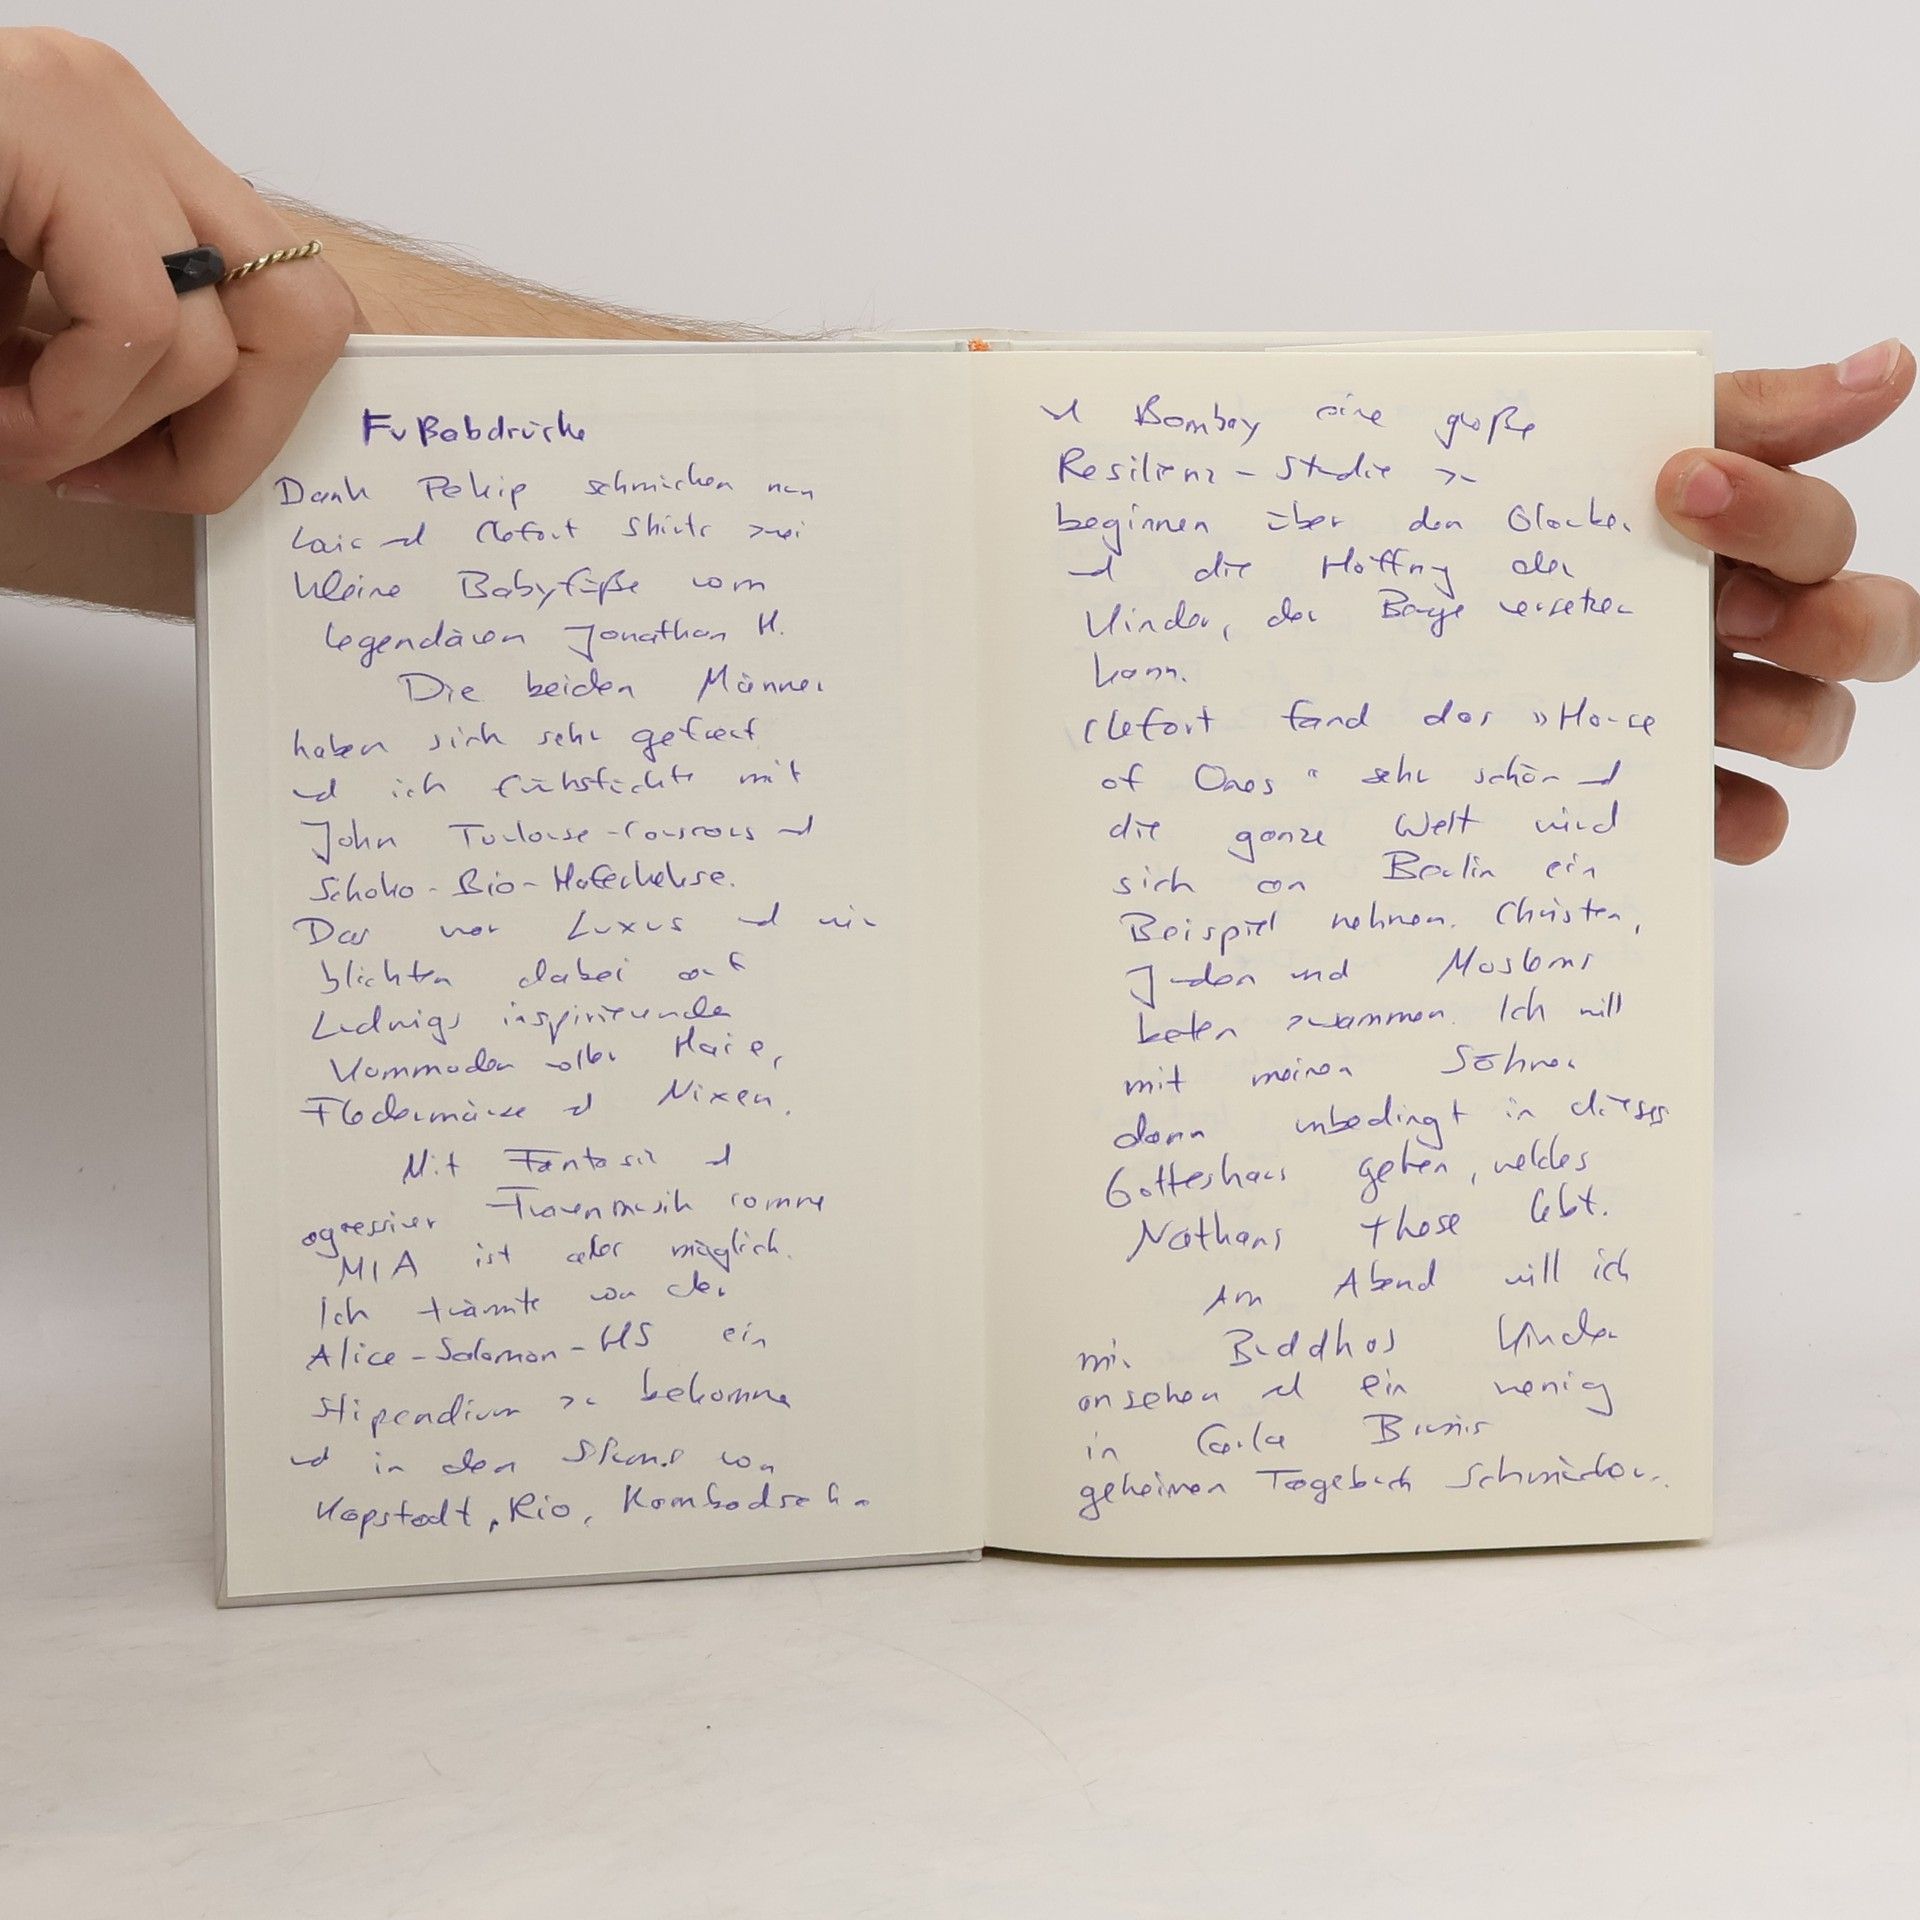 Fußabdrücke
Dank Pekip schmücken nun
Laic und Clefort Shirts zwei
kleine Babyfüße vom
legendären Jonathan H.
Die beiden Männer
haben sich sehr gefreut
und ich frühstückte mit
John Toulouse-Couscous und
Schoko-Bio-Haferkekse.
Das war Luxus und wir
blickten dabei auf
Ludwigs inspirierende
Kommoden voller Haie,
Fledermäuse und Nixen.
Mit Fantasie und
agressiver Frauenmusik comme
MIA ist aber möglich.
Ich träumte von der
Alice-Salomon-HS ein
Stipendium zu bekomme
und in den Slums von
Kapstadt, Rio, Kombodscha
und Bombay eine große
Resilienz-Studie zu
beginnen über den Glauben
und die Hoffnung der
Kinder, der Berge versetzen
kann.
Clefort fand das »House
of Ones" sehr schön und
die ganze Welt wird
sich an Berlin ein
Beispiel nehmen. Christen,
Juden und Moslems
beten zusammen. Ich will
mit meinen Söhnen
dann unbedingt in dieses
Gotteshaus gehen, welches
Nathans These lebt.
Am Abend will ich
mir Buddhas Kinder
ansehen und ein wenig
in Carla Brunis
geheimen Tagebuch schmökern.